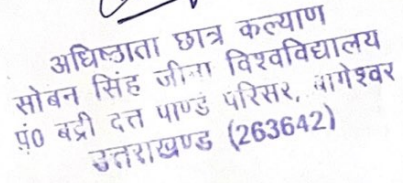 अधिष्ठाता छात्र कल्याण
सोबन सिंह जीना विश्वविद्यालय
पं0 बद्री दत्त पाण्डे परिसर, बागेश्वर
उत्तराखण्ड (263642)